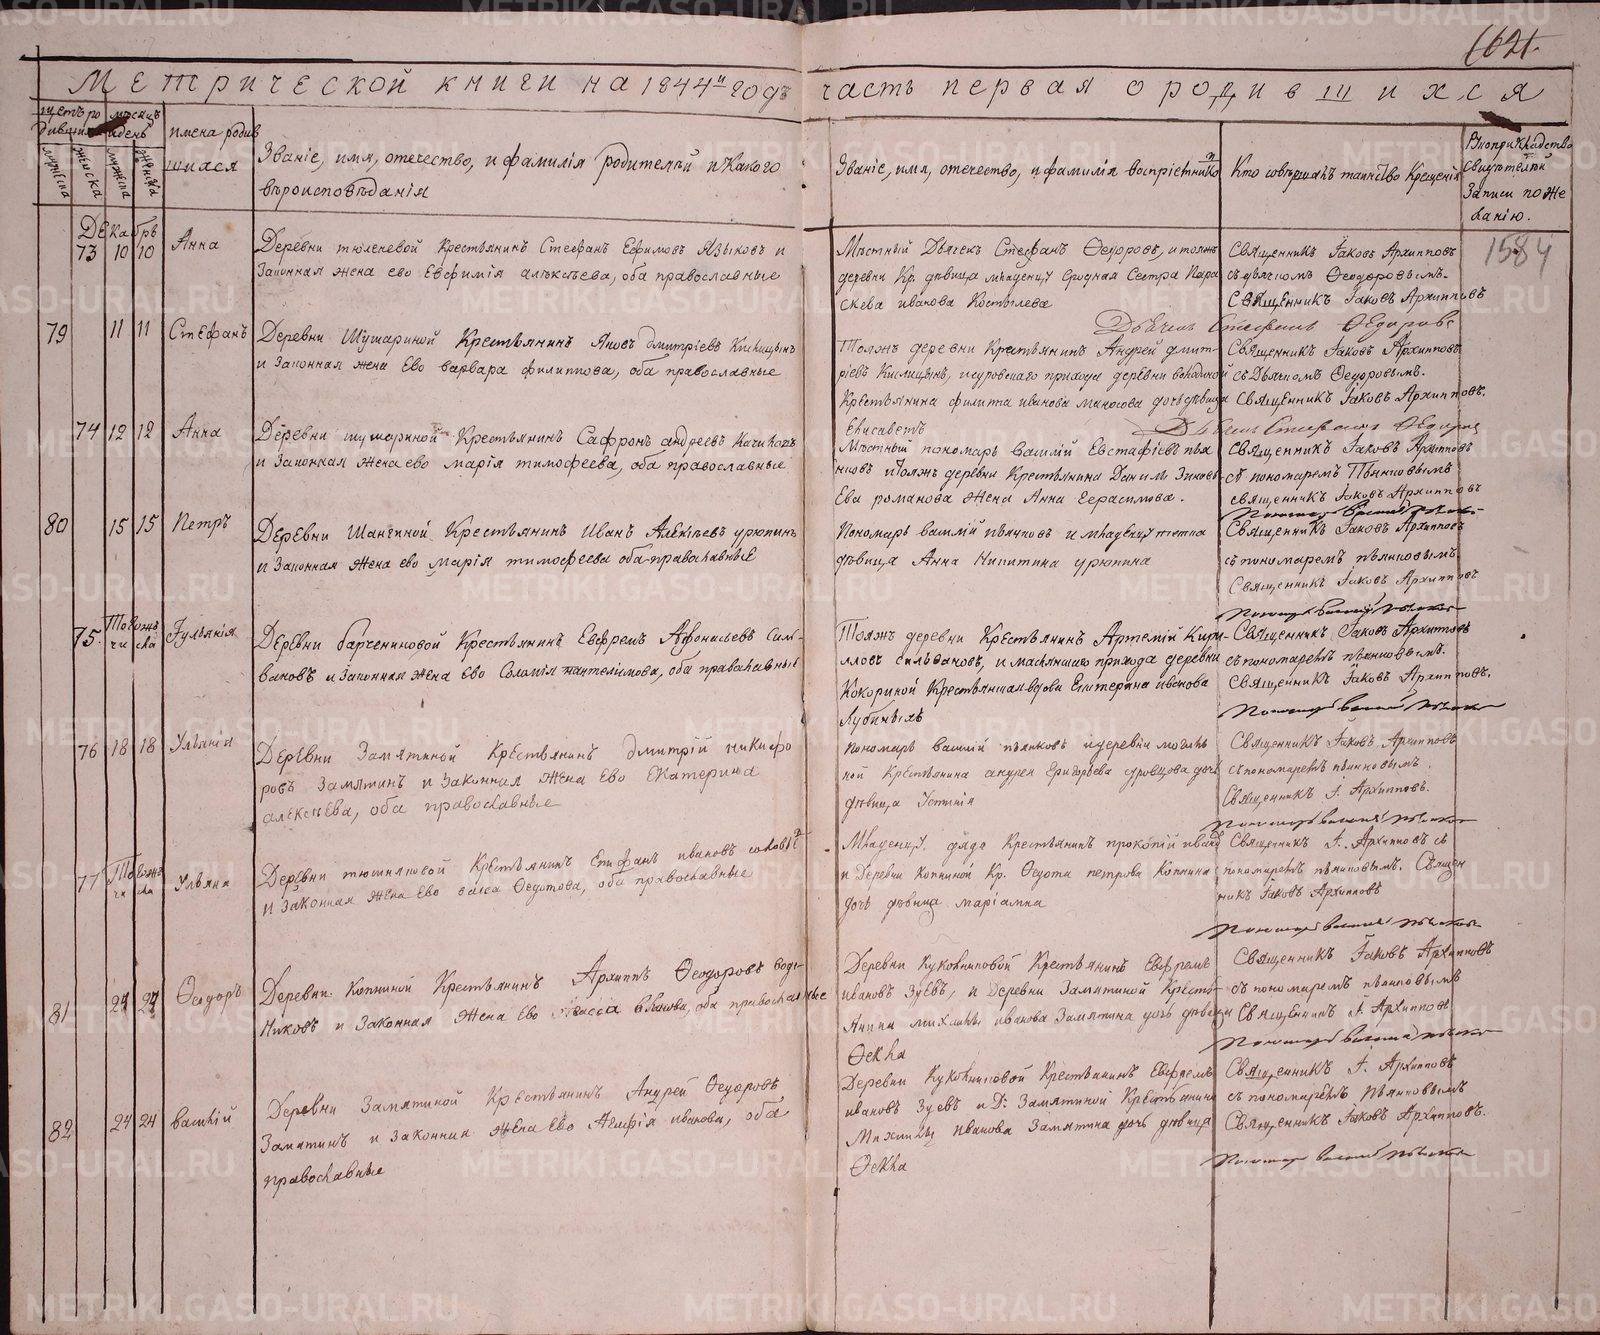 1621.
Метрической книги на 1844й годъ
часть первая о родившихся
щетъ ро
дивших
мѣсяцъ
и день
имена родив
шихся
мужеска
женска
Званіе, имя, отечество, и фамилія родителей и какого
вѣроисповѣданія
Званіе, имя, отечество, и фамилія воспріемниковъ
Кто совершалъ таинство Крещенія
свидѣтелей
Записи по же
ланію.
Декабрь
73 10 10 Анна
Деревни тюленевой Крестьянинъ Стефанъ Ефимовъ Языковъ и
Законная жена ево Евфимія алексѣева, оба православные
Мѣстный Дьячекъ Стефанъ Ѳедоровъ, и тояжъ
деревни Кр. дѣвица младенцу сродная Сестра Пара
скева иванова Костылева
Священникъ Іаковъ Архипповъ
съ дьячкомъ Ѳеодоровымъ.
Священникъ Іаковъ Архипповъ
Дьячекъ Стефанъ Ѳедоровъ
1584
79 11 11 Стефанъ
Деревни Шушариной Крестьянинъ Яковъ дмитріевъ Кислицынъ
и Законная жена Ево варвара филиппова, оба православные
Тояжъ деревни Крестьянинъ Андрей дмит-
ріевъ Кислицынъ, прихода деревни
Крестьянина филипа иванова дочь дѣвица
Елисаветъ
Священникъ Іаковъ Архипповъ
съ Дьячкомъ Ѳедоровымъ.
Священникъ Іаковъ Архипповъ.
Дьячекъ Стефанъ Ѳедоровъ
74 12 12 Анна
Деревни шушариной Крестьянинъ Сафронъ андреевъ
и Законная жена ево марія тимофеева, оба православные
Мѣстный пономарь василій Евстафіевъ пьян
ковъ и тояжъ деревни Крестьянина
романова жена Анна Герасимова.
Священникъ Іаковъ Архипповъ
съ пономаремъ Пьянковымъ
священникъ Іаковъ Архипповъ
Пономарь Василій Пьянковъ
80 15 15 Петръ
Деревни Шангиной Крестьянинъ Иванъ Алексѣевъ урюпинъ
и Законная жена ево марія тимофеева оба православные
Пономарь василій пьянковъ и младенцу тетка
дѣвица Анна Никитина урюпина
Священникъ Іаковъ Архипповъ
съ пономаремъ пьянковымъ.
Священникъ Іаковъ Архипповъ
Пономарь Василій Пьянковъ
75. Тогожъ числа Іуліянія
Деревни барчениновой Крестьянинъ Евфремъ Афонасьевъ Сили-
вановъ и Законная жена Ево Соломія пантелимова, оба православные
Тояжъ деревни Крестьянинъ Артемій Кири-
лловъ Сильвановъ, и прихода деревни
Кокориной Крестьянская вдова Екатерина иванова
Священникъ Іаковъ Архипповъ
съ пономаремъ пьянковымъ.
Священникъ Іаковъ Архипповъ.
Пономарь Василій Пьянковъ
76 18 18 Ульянія
Деревни Замятиной Крестьянинъ дмитрій никифо
ровъ Замятинъ и Законная жена Ево Екатерина
алексѣева, оба православные
Пономарь василій пьянковъ и деревни
ной Крестьянина андрея Григорьева суровцова дочь
дѣвица Устинія
Священникъ Іаковъ Архипповъ
съ пономаремъ пьянковымъ.
Священникъ І. Архипповъ.
Пономарь Василій Пьянковъ
77 Тогожъ числа Ульяна
Деревни Крестьянинъ Стефанъ ивановъ
и Законная жена Ево васса Ѳедотова, оба православные
Младенцу дядя Крестьянинъ прокопій ивановъ
и Деревни Копниной Кр. Ѳедота петрова Копнина
дочь дѣвица маріамна
Священникъ І. Архипповъ съ
пономаремъ пьянковымъ. Священ
никъ Іаковъ Архипповъ
Пономарь Василій Пьянковъ
81 24 24 Ѳеодоръ
Деревни Копниной Крестьянинъ Архиппъ Ѳеодоровъ Воде-
никовъ и Законная жена Ево оба православные
Деревни Куковниковой Крестьянинъ Евфремъ
ивановъ Зуевъ, и Деревни Замятиной Кресть-
янина михаилы иванова Замятина дочь дѣвица
Ѳекла
Священникъ Іаковъ Архипповъ
съ пономаремъ пьянковымъ
Священникъ І. Архипповъ
Пономарь Василій Пьянковъ
82 24 24 василій
Деревни Замятиной Крестьянинъ Андрей Ѳедоровъ
Замятинъ и Законная жена Ево Агафія иванова, оба
православные
Деревни Куковниковой Крестьянинъ Евфремъ
ивановъ Зуевъ и Д: Замятиной Крестьянина
Михаилы иванова Замятина дочь дѣвица
Ѳекла
Священникъ І. Архипповъ
съ пономаремъ Пьянковымъ
Священникъ Іаковъ Архипповъ.
Пономарь Василій Пьянковъ
METRIKI.GASO-URAL.RU